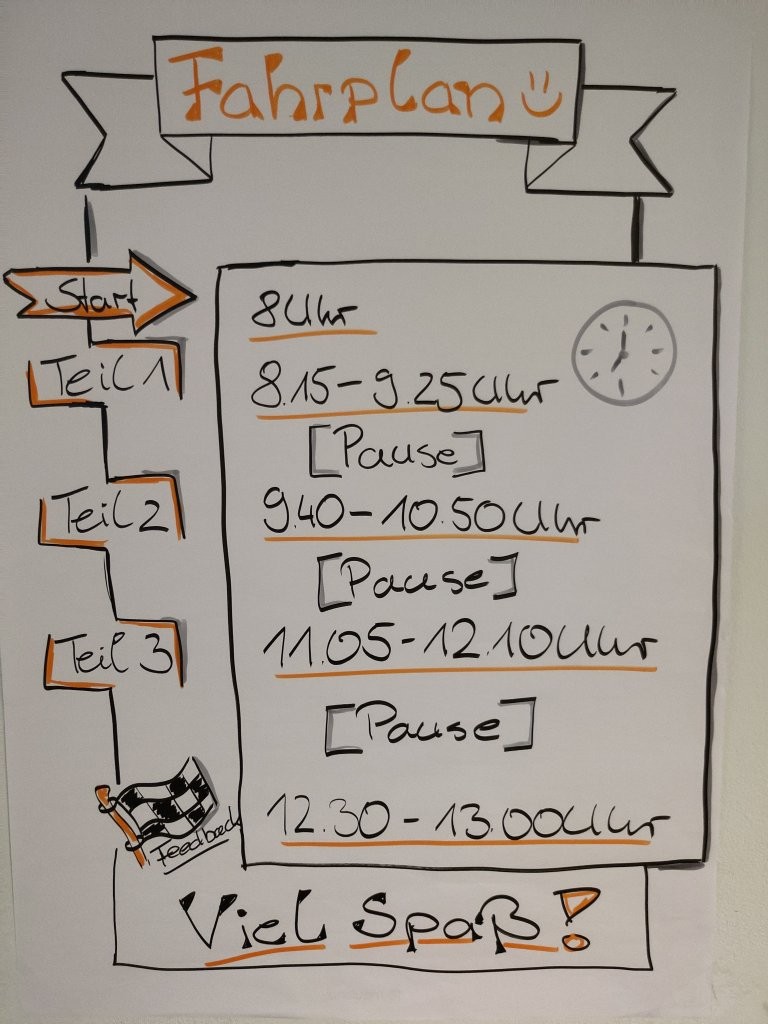 Fahrplan
Start
8 Uhr
Teil 1
8.15 - 9.25 Uhr
[Pause]
Teil 2
9.40 - 10.50 Uhr
[Pause]
Teil 3
11.05 - 12.10 Uhr
[Pause]
Feedback
12.30 - 13.00 Uhr
Viel Spaß!